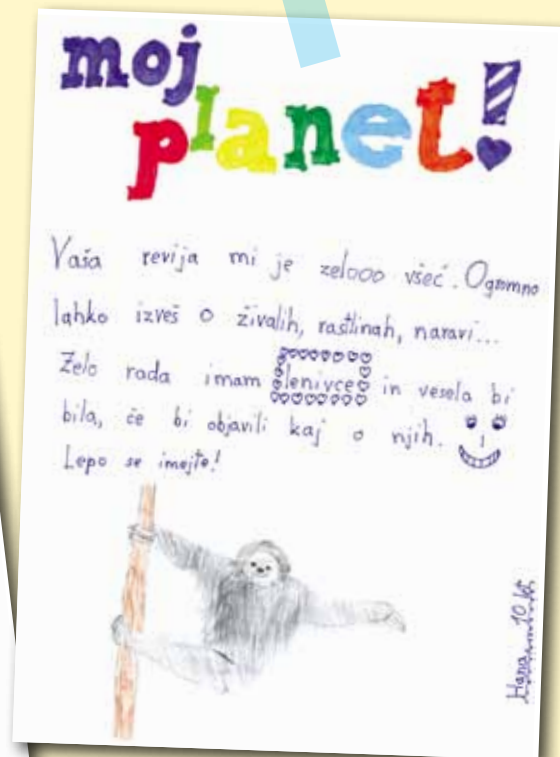 moj
planet!
Vaša revija mi je zelooo všeč. Ogromno
lahko izveš o živalih, rastlinah, naravi...
Zelo rada imam lenivce in vesela bi
bila, če bi objavili kaj o njih.
Lepo se imejte!
Hana, 10 let